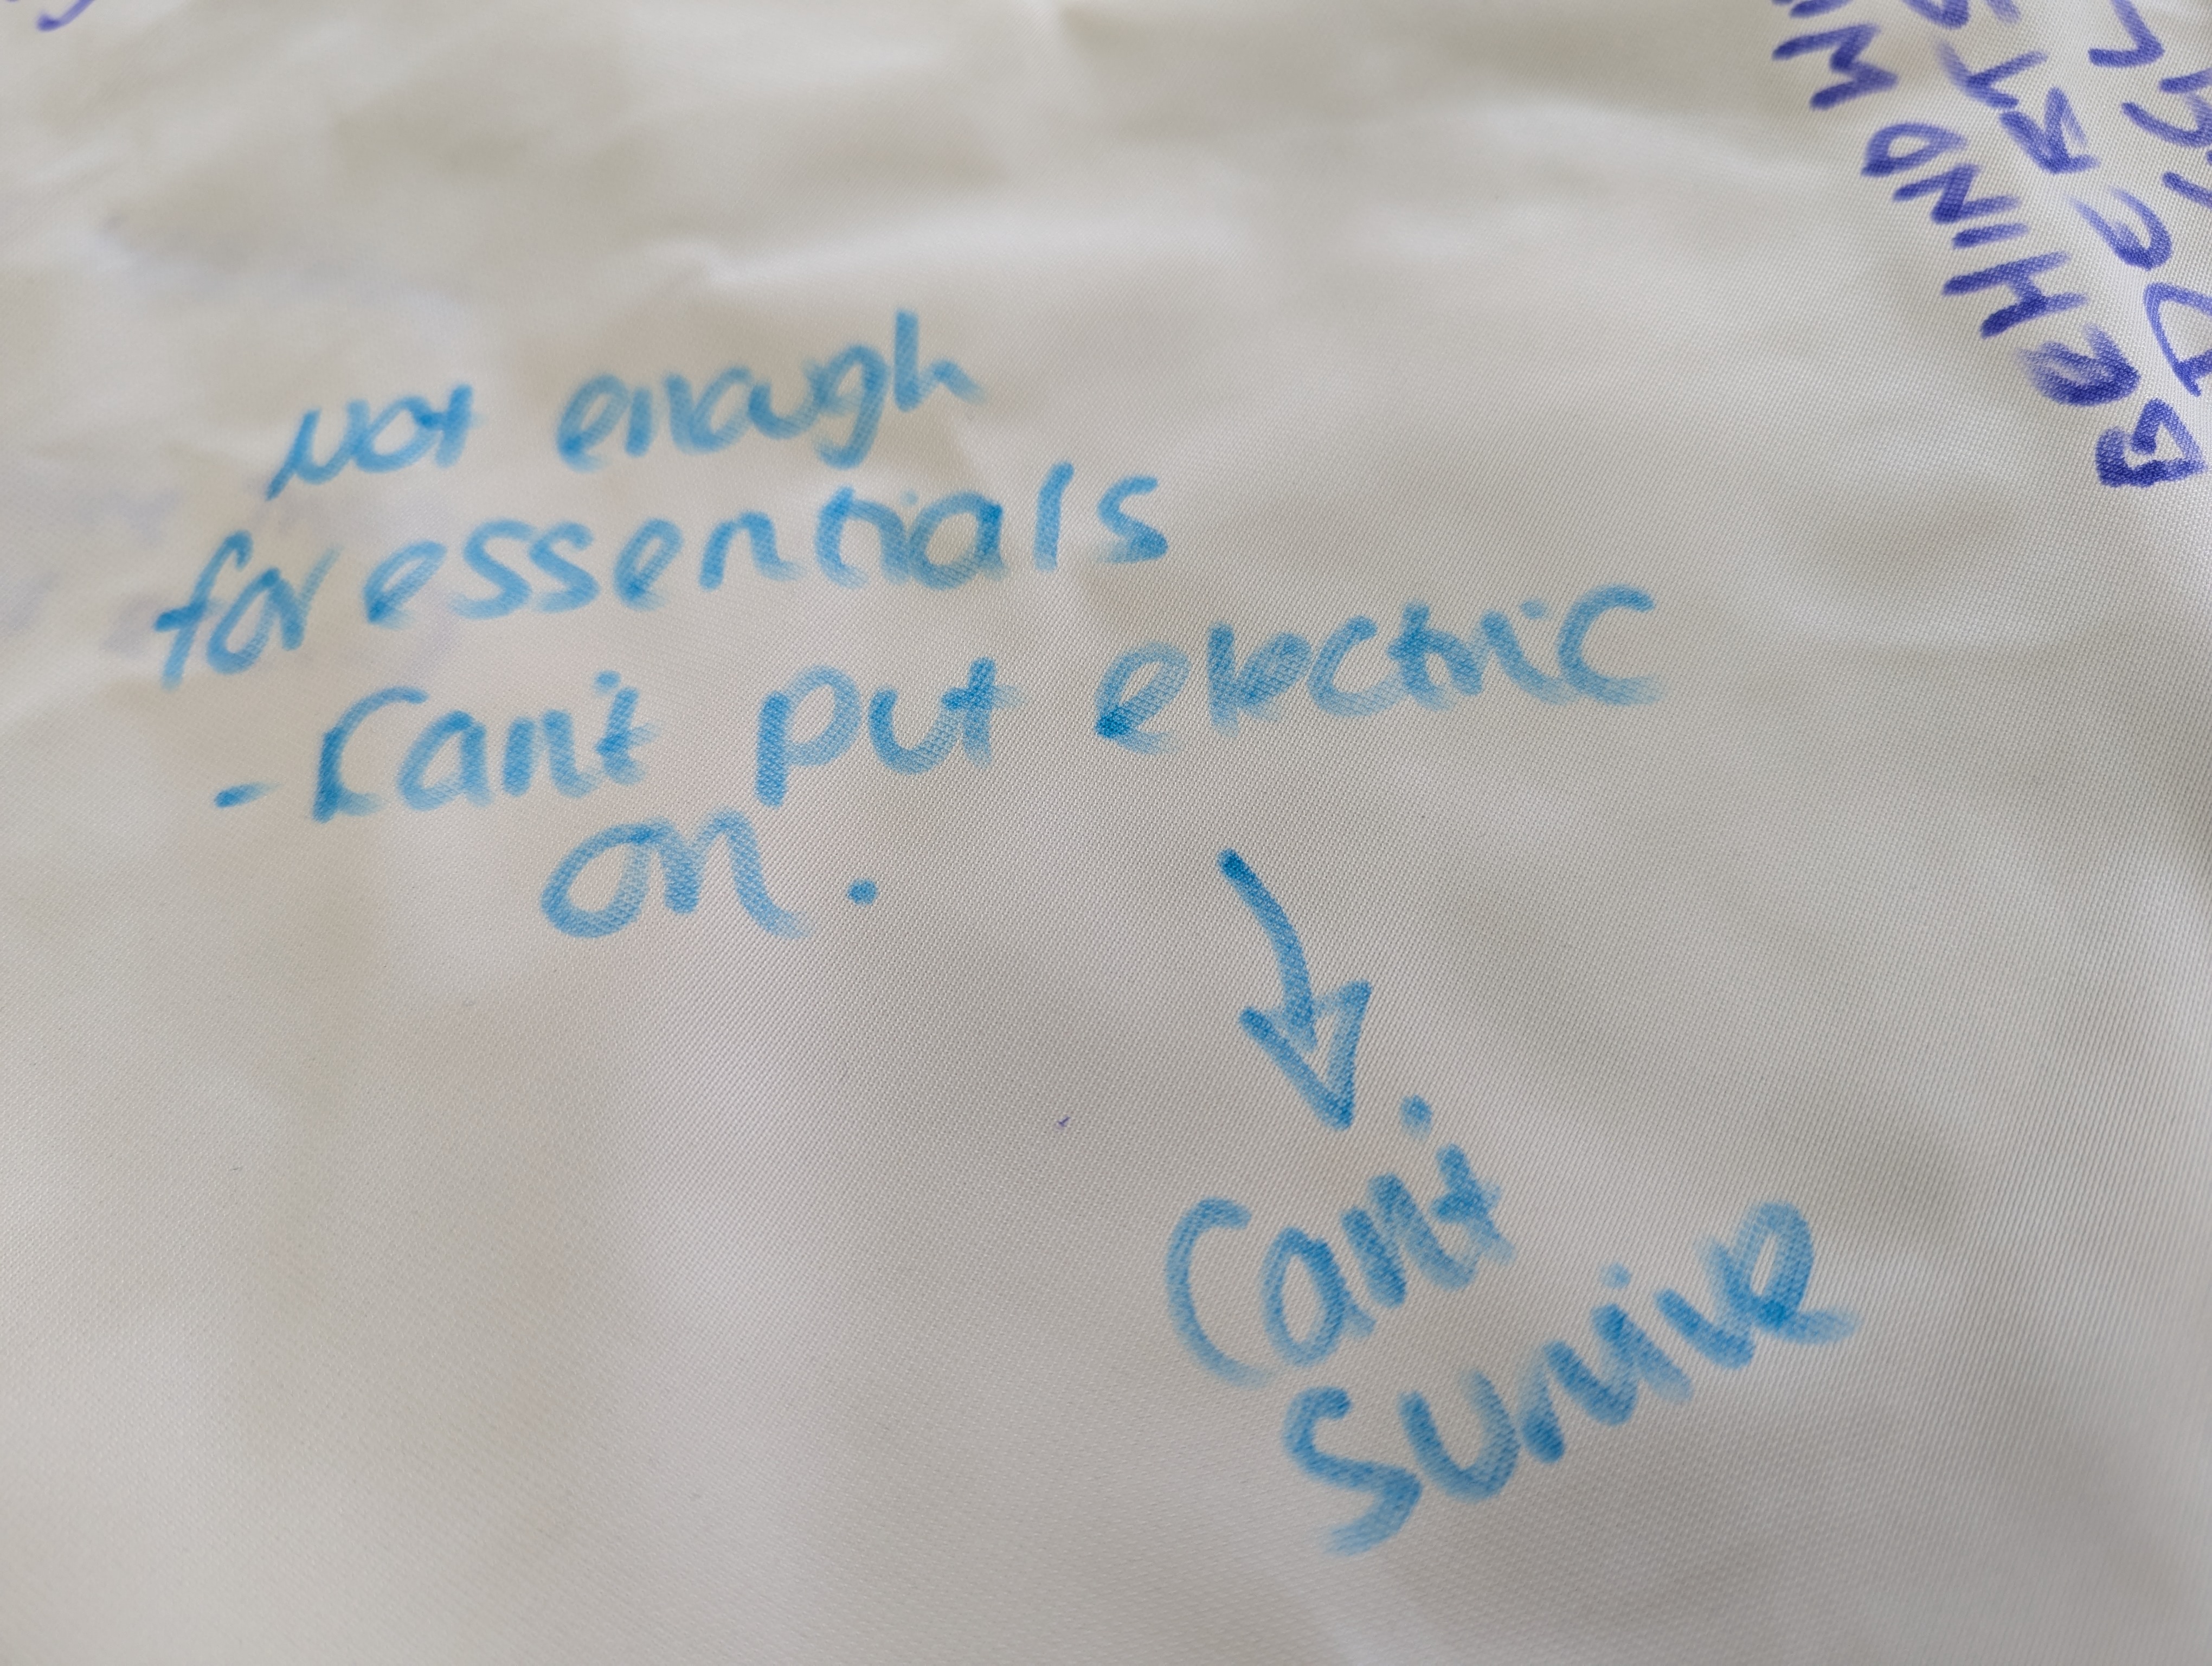 not enough
for essentials
- Can't put electric
on.
↓
Can't
survive
BEHIND